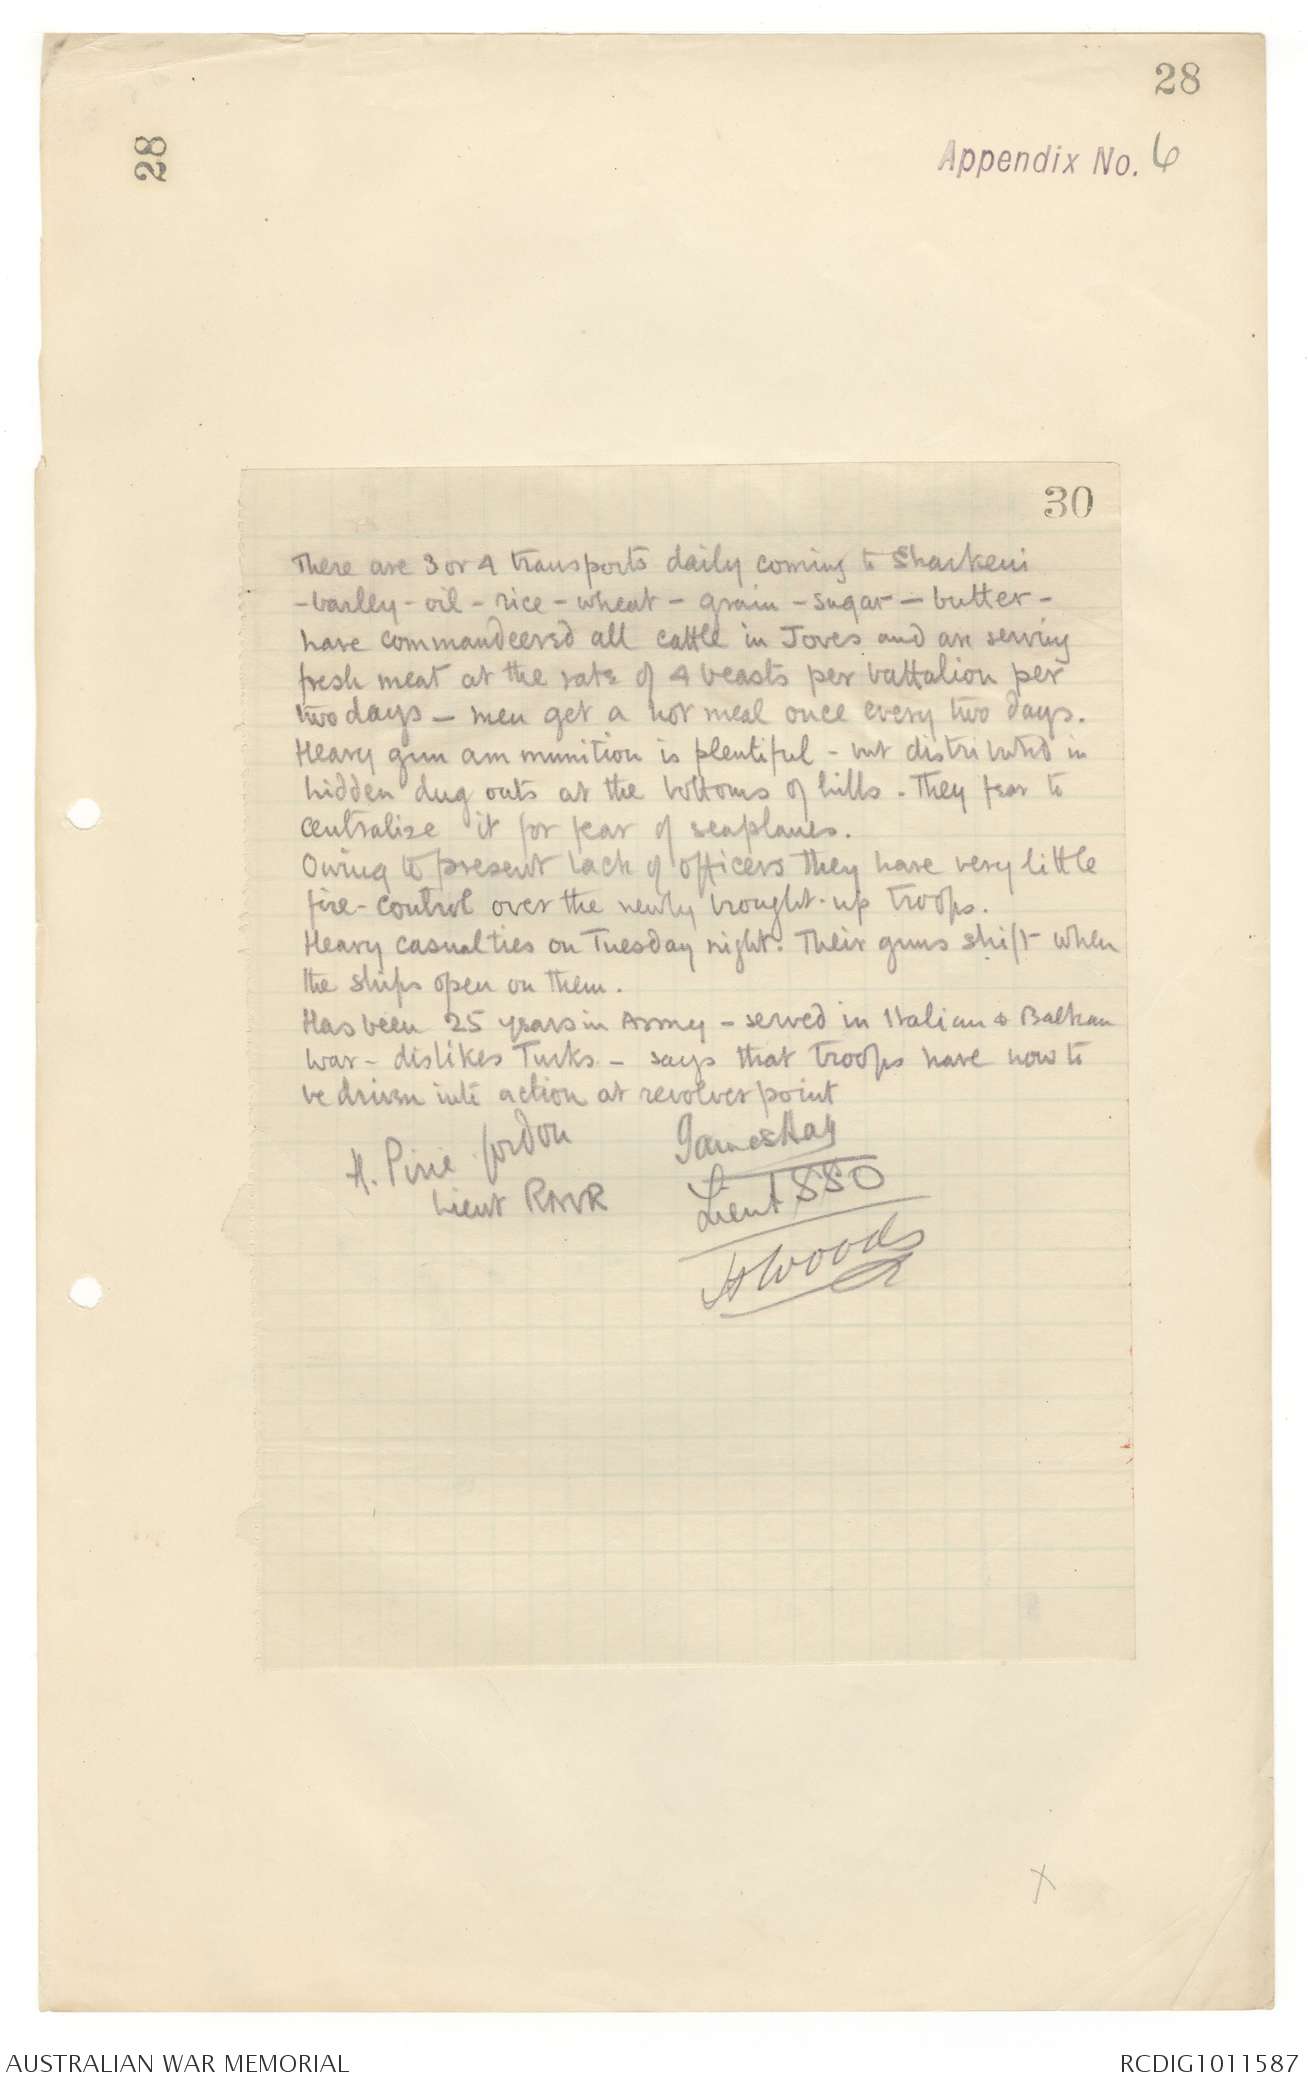 28
28
Appendix No. 6
30
There are 3 or 4 transports daily coming to Sharkeui
- barley - oil - rice - wheat - grain - sugar - butter -
have commandeered all cattle in Joves and are serving
fresh meat at the rate of 4 beasts per battalion per
two days - men get a hot meal once every two days.
Heavy gun ammunition is plentiful - but distributed in
hidden dug outs at the bottoms of hills. They fear to
centralize it for fear of seaplanes.
Owing to present lack of officers they have very little
fire-control over the newly brought-up troops.
Heavy casualties on Tuesday night. Their guns shift when
the ships open on them.
Has been 25 years in Army - served in Italian & Balkan
war - dislikes Turks - says that troops have now to
be driven into action at revolver point
H. Pirie Gordon
Lieut RNVR
James Hay
Lieut SSO
H Woods
X
AUSTRALIAN WAR MEMORIAL
RCDIG1011587